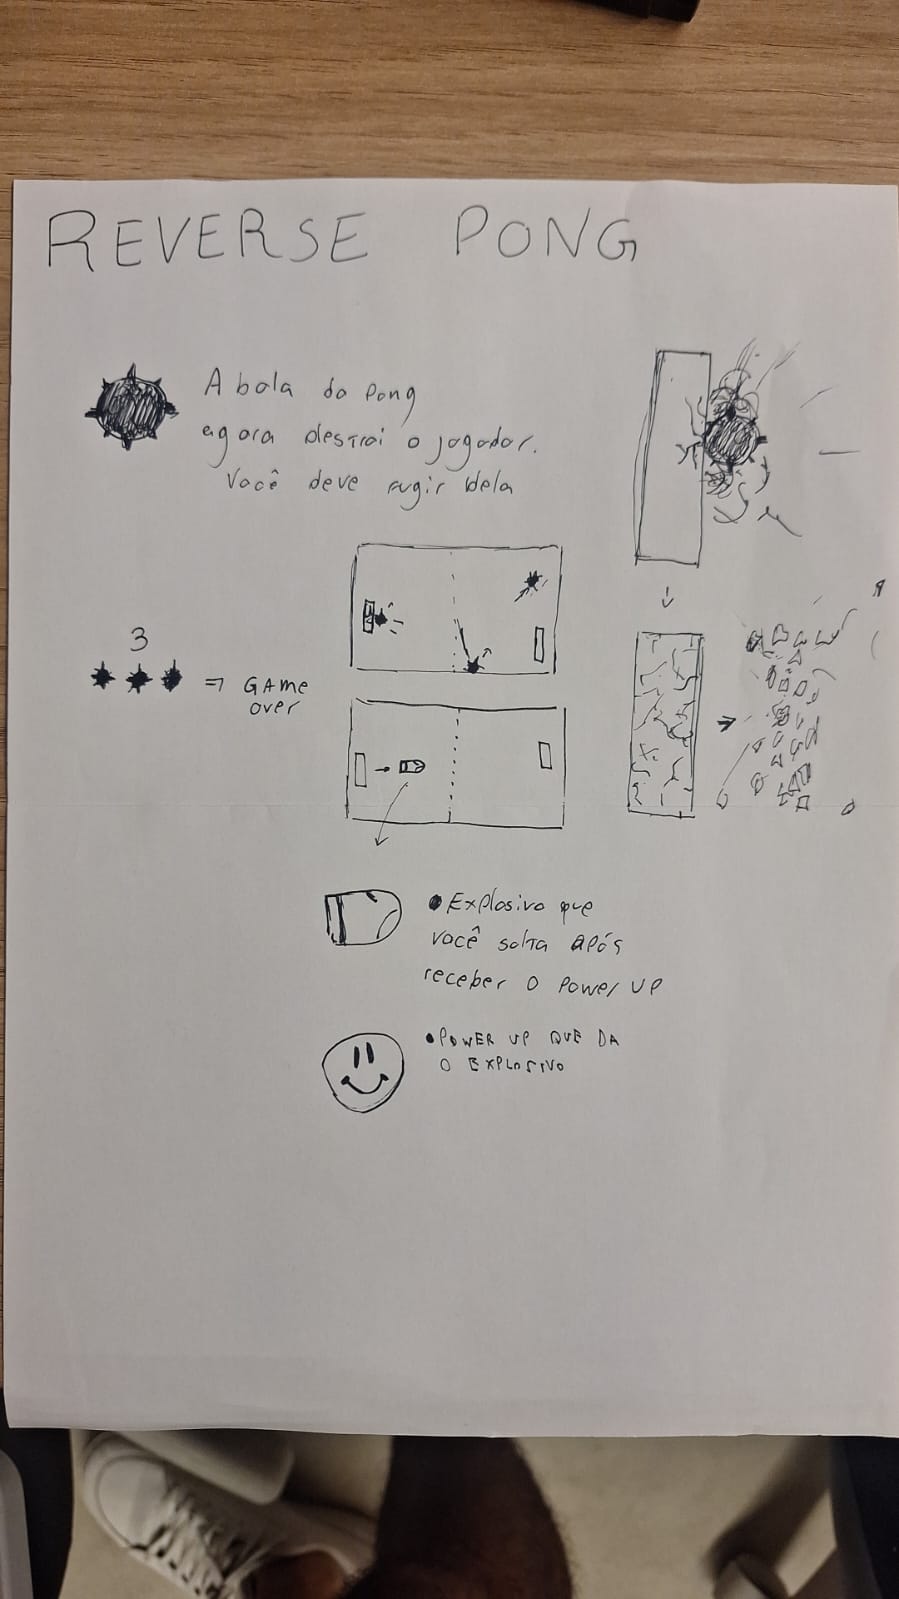 REVERSE PONG
A bola do Pong
agora destroi o jogador.
Você deve fugir dela
3
=> GAME
over
• Explosivo que
você solta após
receber o Power UP
• POWER UP QUE DA
O EXPLOSIVO